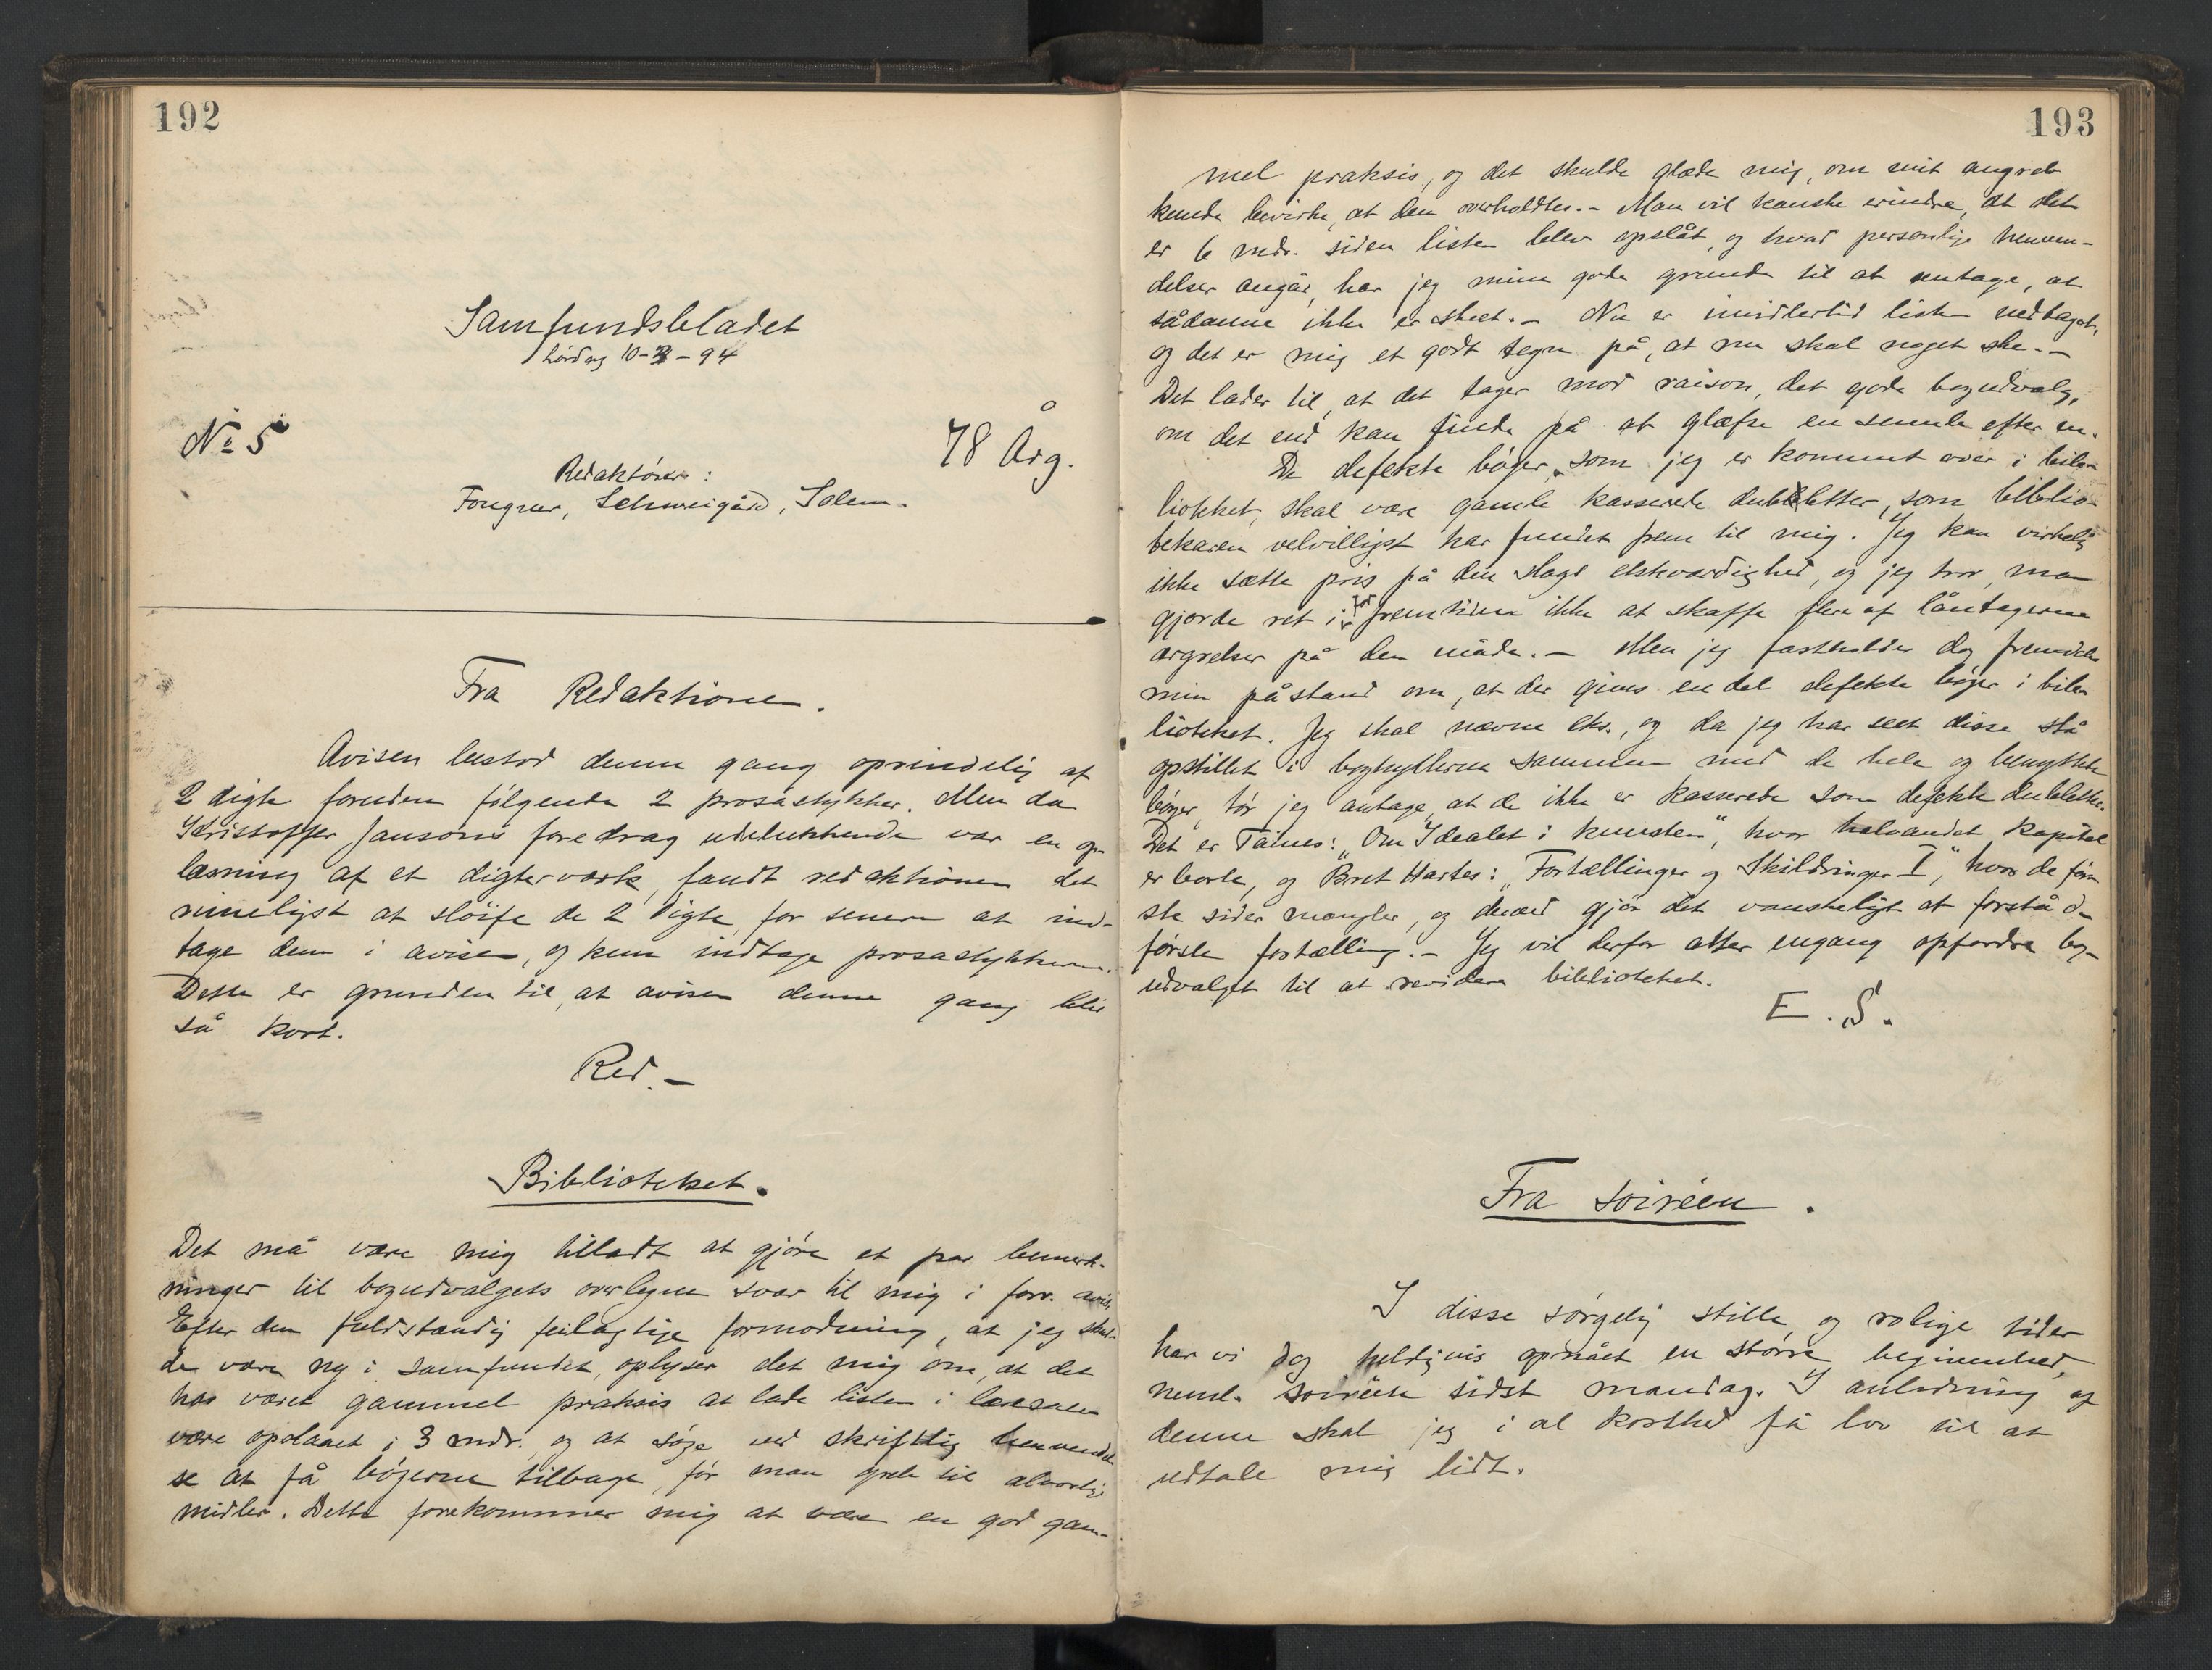 192
Samfundsbladet
Lørdag 10-3-94
No 5
78 Årg.
Redaktører:
Fougner, Schweigård, Solem.
Fra Redaktionen.
Avisen bestod denne gang oprindelig af
2 digte foruden følgende 2 prosastykker. Men da
Kristoffer Jansons foredrag udelukkende var en op-
læsning af et digterværk, fandt redaktionen det
rimeligst at sløife de 2 digte, for senere at ind-
tage dem i avisen, og kun indtage prosastykkerne.
Dette er grunden til, at avisen denne gang blir
så kort.
Red.-
Biblioteket.
Det må være mig tilladt at gjøre et par bemærk-
ninger til bogudvalgets overlegne svar til mig i forr. avis.
Efter den fuldstændig feilagtige formodning, at jeg skul-
de være ny i samfundet, oplyser det mig om, at det
har været gammel praksis at lade listen i læsesalen
være opslaaet i 3 mdr. og at søge ved skriftlig henvendel-
se at få bøgerne tilbage, før man greb til alvorlige
midler. Dette forekommer mig at være en god gam-
193
mel praksis, og det skulde glæde mig, om mit angreb
kunde bevirke, at den overholdtes.- Man vil kanske erindre, at det
er 6 mdr. siden listen blev opslåt, og hvad personlige henven-
delser angår, har jeg mine gode grunde til at antage, at
sådanne ikke er skeet.- Nu er imidlertid listen nedtaget,
og det er mig et godt tegn på, at nu skal noget ske.-
Det lader til, at det tager mod raison, det gode bogudvalg,
om det end kan finde på at glæfse en smule efter en.
De defekte bøger, som jeg er kommet over i bib-
lioteket, skal være gamle kasserede dubletter, som biblio-
tekaren velvilligst har fundet frem til mig. Jeg kan virkelig
ikke sætte pris på den slags elskværdighed, og jeg tror, man
gjorde ret i for fremtiden ikke at skaffe flere af låntagerne
ærgrelser på den måde.- Men jeg fastholder dog fremdeles
min påstand om, at der gives en del defekte bøger i bib-
lioteket. Jeg skal nævne eks., og da jeg har seet disse stå
opstillet i boghyllerne sammen med de hele og benyttede
bøger, tør jeg antage, at de ikke er kasserede som defekte dubletter.
Det er Taines: "Om Idealet i kunsten", hvor halvandet kapitel
er borte, og Bret Hartes: "Fortællinger og Skildringer I", hvor de før-
ste sider mangler, og derved gjør det vanskeligt at forstå den
første fortælling.- Jeg vil derfor atter engang opfordre bog-
udvalget til at revidere biblioteket.
E. S.
Fra soiréen.
I disse sørgelig stille og rolige tider
har vi dog heldigvis opnået en større begivenhed,
neml. soiréen sidst mandag. I anledning af
denne skal jeg i al korthed få lov til at
udtale mig lidt.